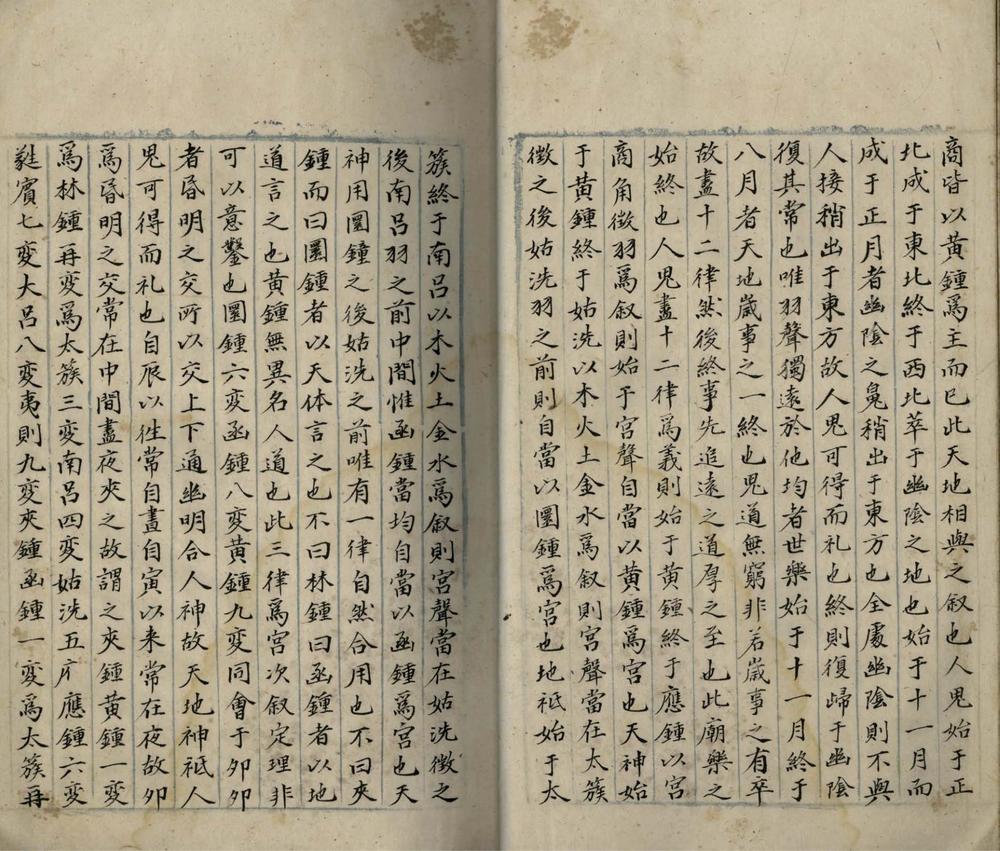 商皆以黃鍾爲主而已此天地相與之叙也人鬼始于正
北成于東北終于西北萃于幽陰之地也始于十一月而
成于正月者幽陰之魄稍出于東方也全處幽陰則不與
人接稍出于東方故人鬼可得而礼也終則復歸于幽陰
復其常也唯羽聲獨遠於他均者世樂始于十一月終于
八月者天地歲事之一終也鬼道無窮非若歲事之有卒
故盡十二律然後終事先追遠之道厚之至也此廟樂之
始終也人鬼盡十二律爲義則始于黃鍾終于應鍾以宮
商角徵羽爲叙則始于宮聲自當以黃鍾爲宮也天神始
于黃鍾終于姑洗以木火土金水爲叙則宮聲當在太簇
徵之後姑洗羽之前則自當以圜鍾爲宮也地祗始于太
簇終于南呂以木火土金水爲叙則宮聲當在姑洗徵之
後南呂羽之前中間惟函鍾當均自當以函鍾爲宮也天
神用圜鐘之後姑洗之前唯有一律自然合用也不曰夾
鍾而曰圜鍾者以天体言之也不曰林鍾曰函鍾者以地
道言之也黃鍾無異名人道也此三律爲宮次叙定理非
可以意鑿也圜鍾六变函鍾八变黃鍾九变同會于夘夘
者昏明之交所以交上下通幽明合人神故天地神祗人
鬼可得而礼也自辰以徃常自晝自寅以来常在夜故夘
爲昏明之交常在中間晝夜夾之故謂之夾鍾黃鍾一变
爲林鍾再变爲太簇三变南呂四变姑洗五疒應鍾六变
蕤賓七变大呂八变夷則九变夾鍾函鍾一变爲太簇再